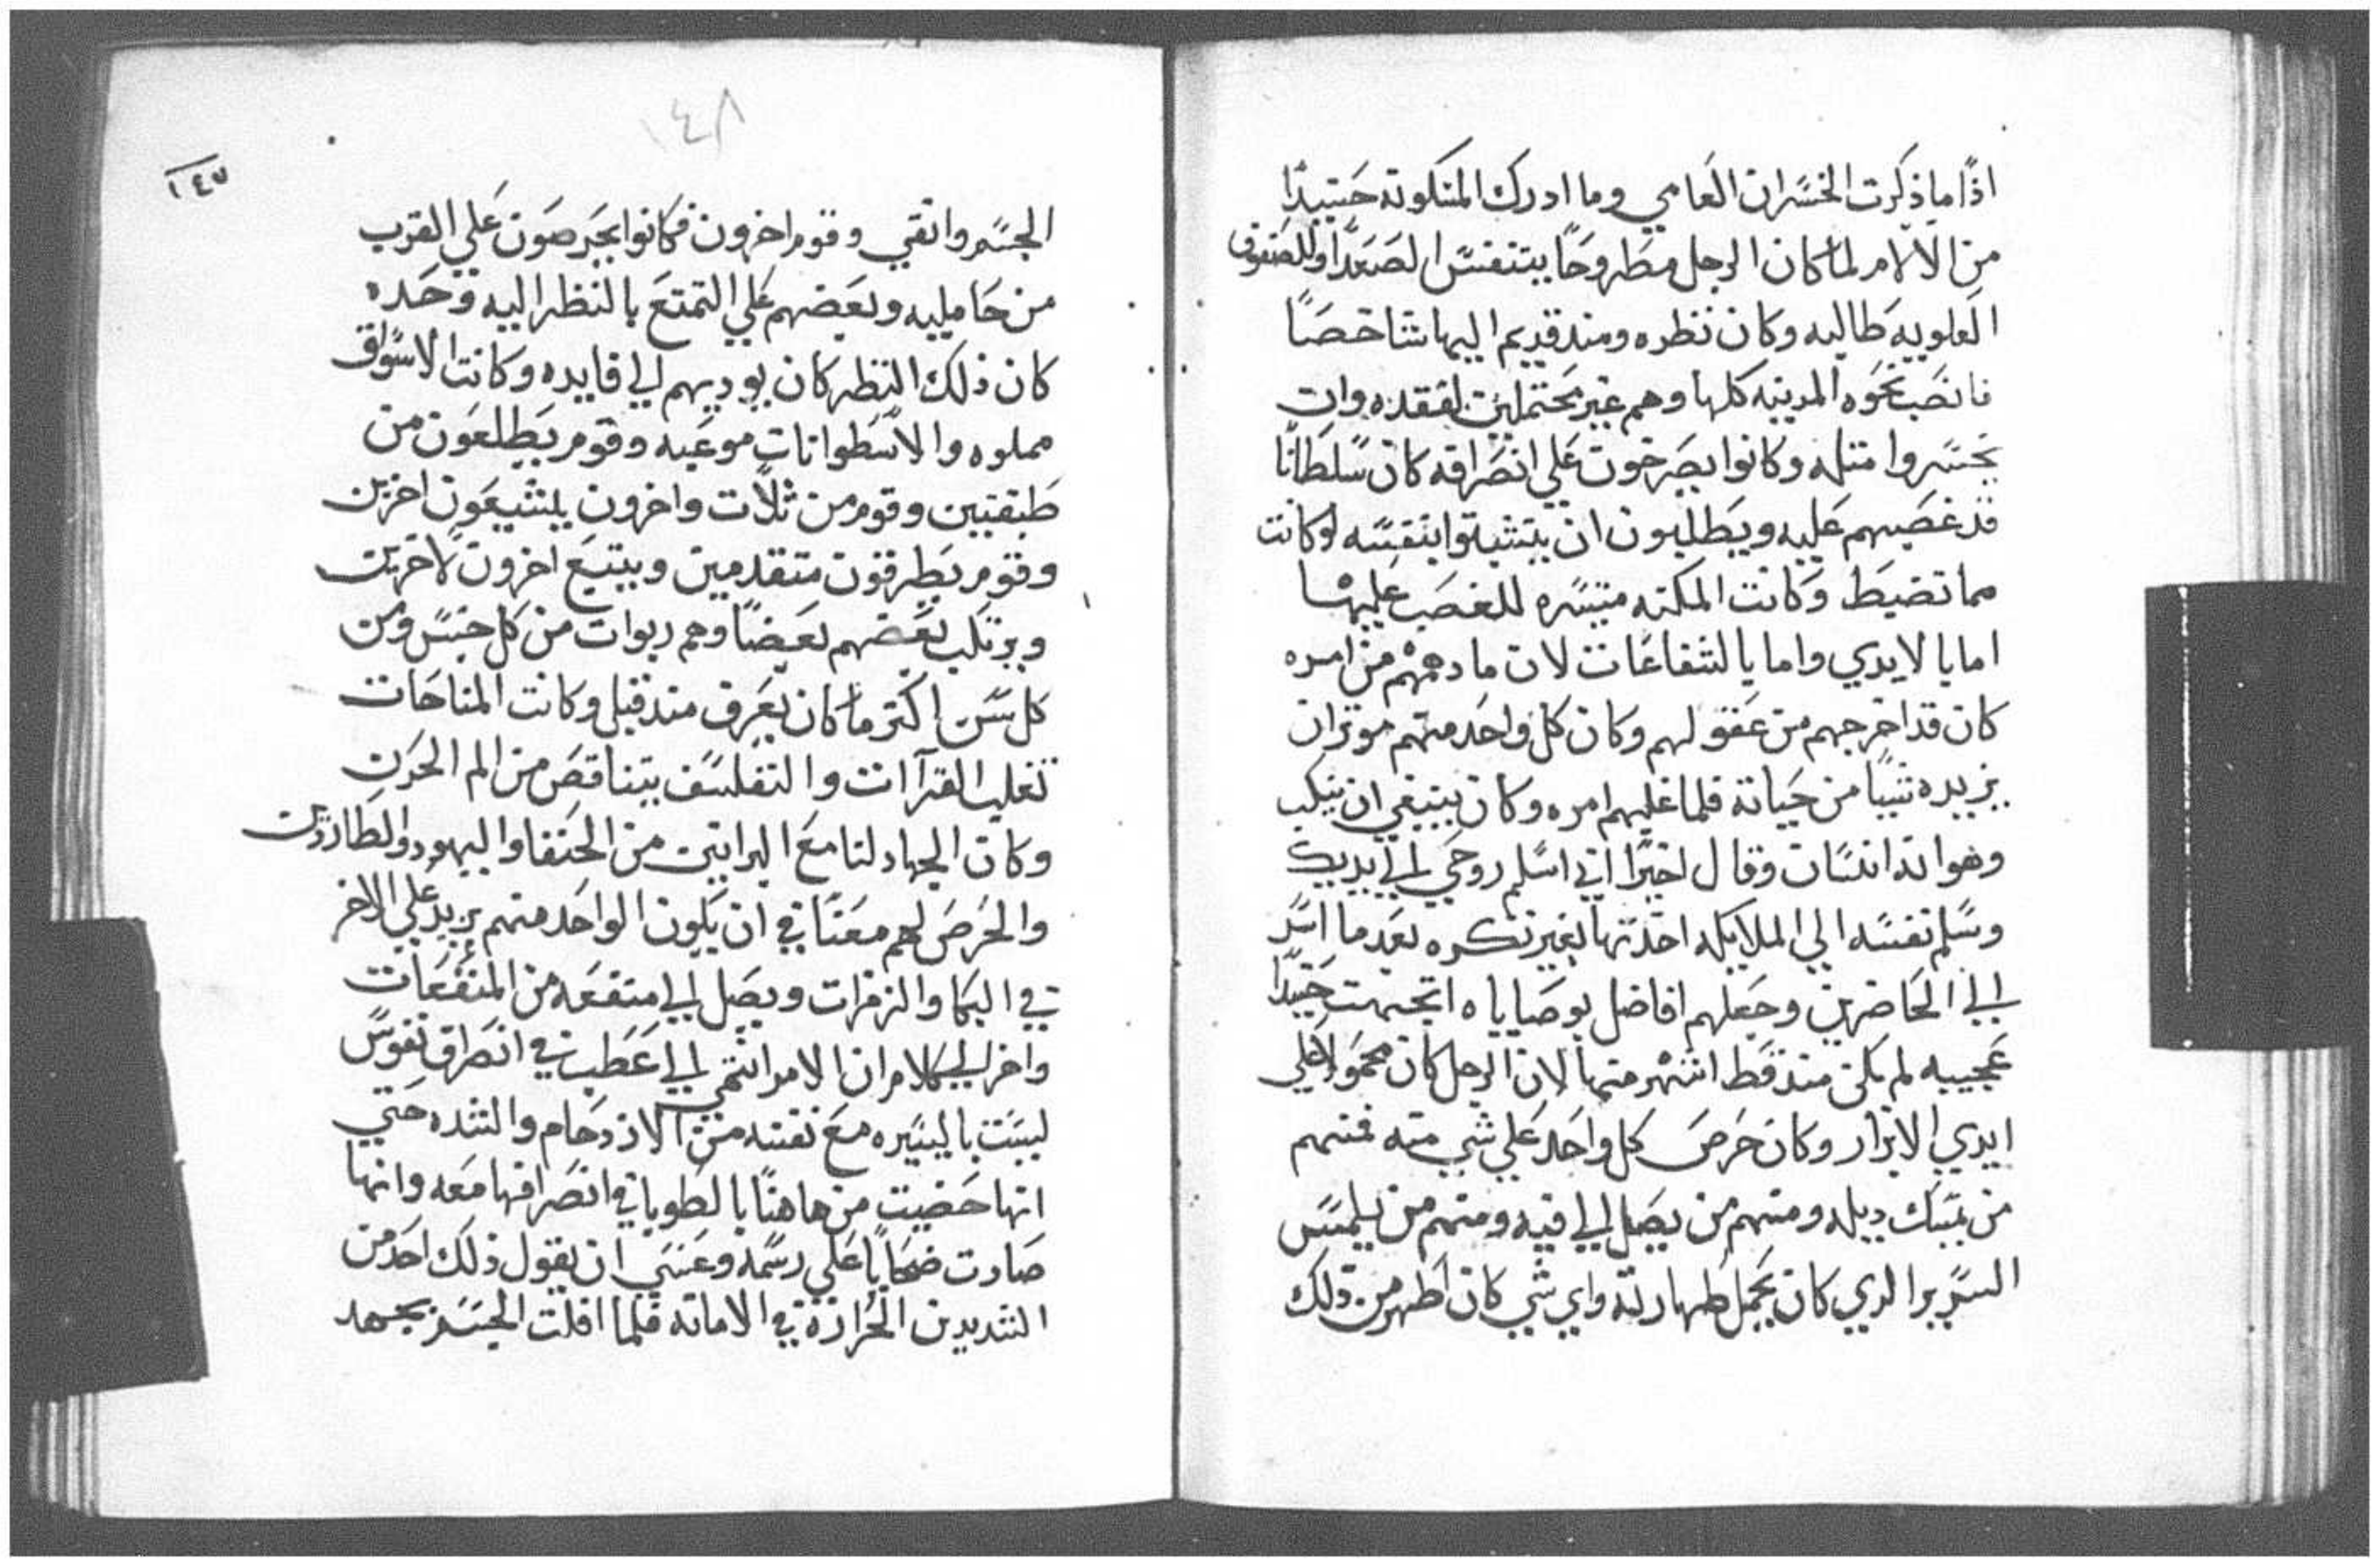 اذًا ما ذكرت الخسران العامي وما ادرك المسكونه حينيدًا
من الالام لما كان الرجل مطروحًا يتنفس الصعدا والصفوف
العلويه طالبه وكان نظره ومند قديم اليها شاخصًا
فانصب نحوه المدينه كلها وهم غير محتملين لفقده وان
يخسروا متله وكانوا يصرخون علي انصرافه كان سلطانًا
قد غصبهم عليه ويطلبون ان يتشبتوا بنفسه لو كانت
مما تضبط وكانت المكنه متيسره للغصب عليها
اما بالايدي واما بالشفاعات لان ما دهمهم من امره
كان قد اخرجهم من عقولهم وكان كل واحد منهم موتران
يزيده شيا من حياته فلما غلبهم امره وكان ينبغي ان ينكب
وهوانه انسان وقال اخيرًا اني اسلم روحي الي يديك
وسلم نفسه الي الملايكه اخدتها بغير تكره بعد ما اسر
الي الحاضرين وجعلهم افاضل بوصاياه اتجهت حينيدًا
عجيبه لم تكن مند قط اشهر منها لان الرجل كان محمولا علي
ايدي الابرار وكان حرص كل واحد علي شي منه فمنهم
من تمسك ديله ومنهم من يصل الي فيه ومنهم من يلمس
السرير الدي كان يحمل طهارته واي شي كان اطهر من ذلك
١٤٨
١٤٧
الجسم وانقي وقوم اخرون فكانوا يحرصون علي القرب
من حامليه وبعضهم علي التمتع بالنظر اليه وحده
كان ذلك النظر كان يوديهم الي فايده وكانت الاسواق
مملوه والاسطوانات موعبه وقوم يطلعون من
طبقتين وقوم من ثلاث واخرون يشيعون اخرين
وقوم يطرقون متقدمين ويتبع اخرون لاخرين
ويرتكب بعضهم بعضًا وهم ربوات من كل جنس ومن
كل سن اكتر ما كان يعرف مند قبل وكانت المناحات
تغلب القراات والتفلسف يتناقص من الم الحزن
وكان الجهاد لنا مع البرانين من الحنفا واليهود والطاردين
والحرص لهم معنًا في ان يكون الواحد منهم يزيد علي الاخر
في البكا والزفرات ويصل الي منفعه من المنفعات
واخر الكلام ان الامر انتهي الي عطب في انصراف نفوس
ليست باليسيره مع نفسه من الازدحام والشده حتي
انها حضيت من هاهنًا بالطوبا في انصرافها معه وانها
صارت ضحايًا علي رسمه وعسي ان يقول ذلك احد من
الشديدين الحرارة في الامانه فلما افلت الجسم بجهد